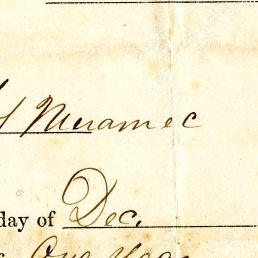 Meramec
day of Dec.
One Year